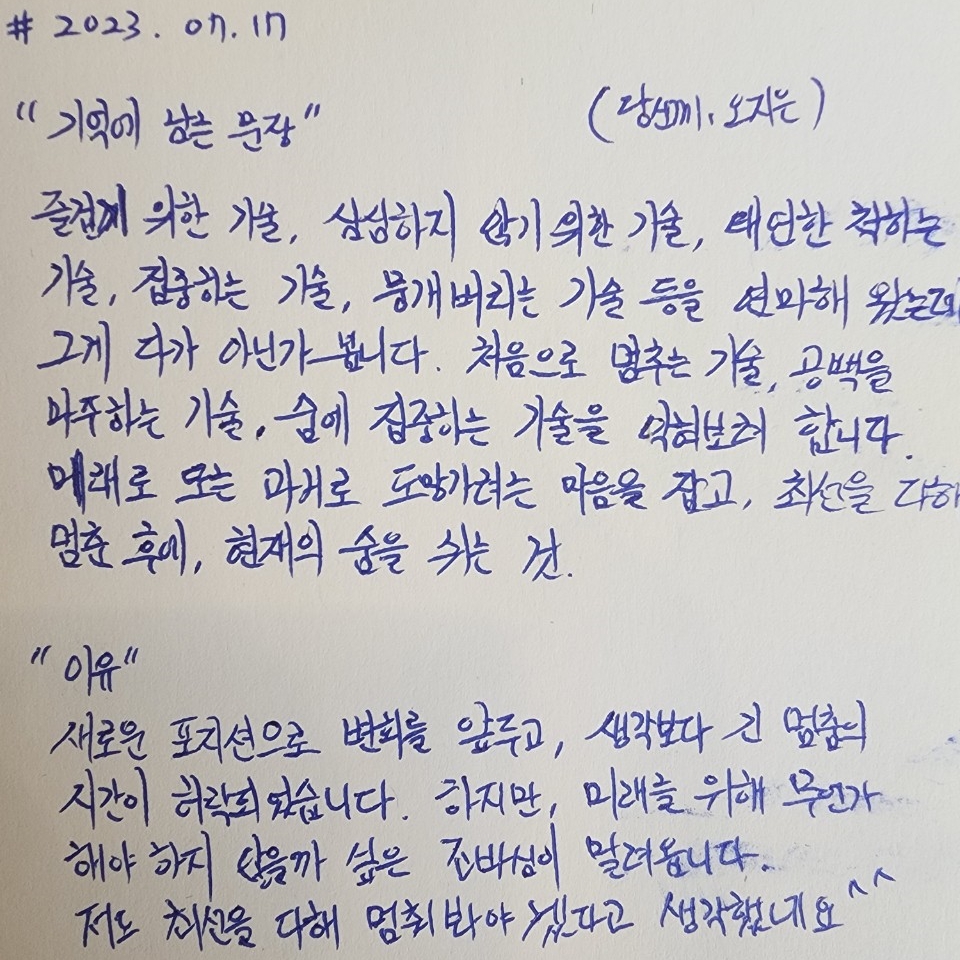 # 2023. 07. 17
"기억에 남는 문장" (당신께, 오지은)
즐겁게 위한 기술, 심심하지 않기 위한 기술, 대단한 척하는
기술, 집중하는 기술, 뭉개버리는 기술 등을 연마해 왔는데
그게 다가 아닌가 봅니다. 처음으로 멈추는 기술, 공백을
마주하는 기술, 숨에 집중하는 기술을 익혀보려 합니다.
미래로 또는 과거로 도망가려는 마음을 잡고, 최선을 다해
멈춘 후에, 현재의 숨을 쉬는 것.
"이유"
새로운 포지션으로 변화를 앞두고, 생각보다 긴 멈춤의
시간이 허락되었습니다. 하지만, 미래를 위해 무언가
해야 하지 않을까 싶은 조바심이 밀려옵니다.
저도 최선을 다해 멈춰봐야 겠다고 생각했네요^^